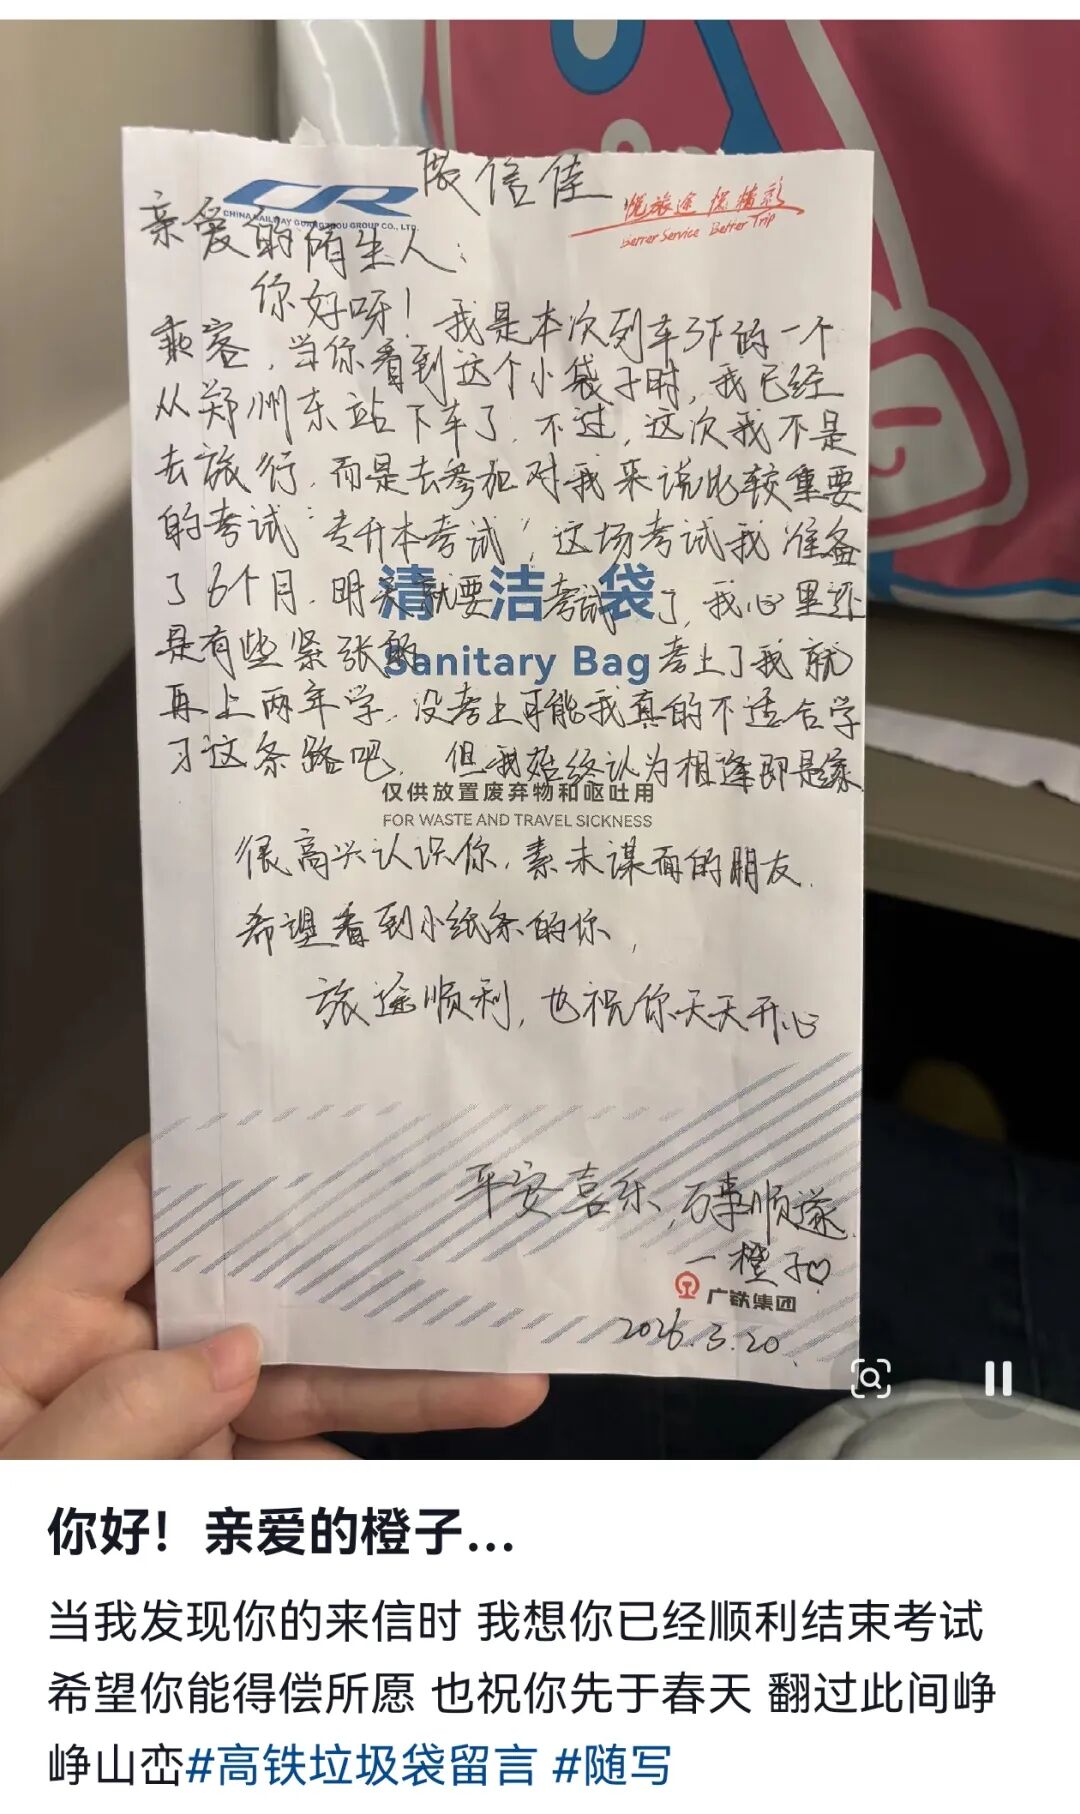 展信佳
CHINA RAILWAY GUANGZHOU GROUP CO., LTD.
悦旅途 悦精彩
Better Service Better Trip
亲爱的陌生人:
你好呀! 我是本次列车 的一个
乘客,当你看到这个小袋子时,我已经
从郑州东站下车了.不过,这次我不是
去旅行.而是去参加对我来说比较重要
的考试“专升本考试”,这场考试我准备
了6个月.明天就要考试了,我心里还
清洁袋
是有些紧张 考上了我就
Sanitary Bag
再上两年学.没考上可能我真的不适合学
习这条路吧.但我始终认为相逢即是缘
仅供放置废弃物和呕吐用
FOR WASTE AND TRAVEL SICKNESS
很高兴认识你,素未谋面的朋友.
希望看到小纸条的你,
旅途顺利,也祝你天天开心
平安喜乐,万事顺遂
一橙子♡
广铁集团
2026.3.20.
你好!亲爱的橙子...
当我发现你的来信时 我想你已经顺利结束考试
希望你能得偿所愿 也祝你先于春天 翻过此间峥
峥山峦#高铁垃圾袋留言 #随写